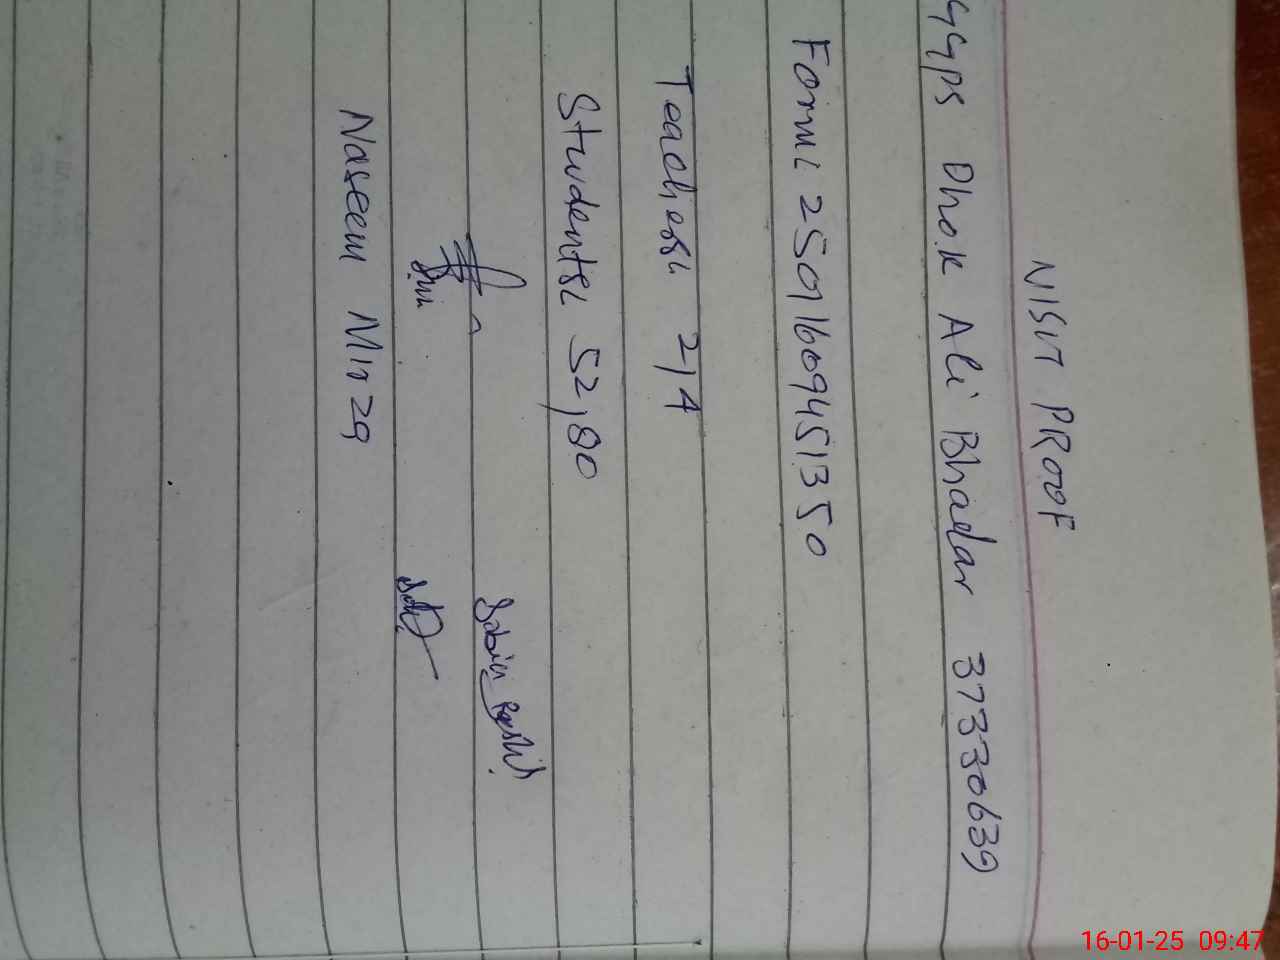 VISIT PROOF
GGPS Dhok Ali Bhadar 37330639
Form: 25011609451350
Teachers: 2/4
Students: 52,80
Sabir Rashid
Naseem Mirza
16-01-25 09:47